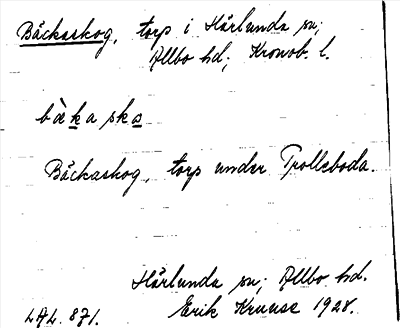 Bäckaskog, torp i Härlunda sn;
Allbo hd; Kronob. l.
bà̈ka sko
Bäckaskog, torp under Trolleboda.
Härlunda sn; Allbo hd.
LAL. 871. Erik Kruuse 1928.